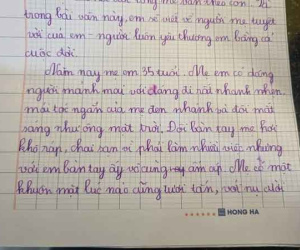 trong bài văn này, em sẽ viết về người mẹ tuyệt
vời của em - người luôn yêu thương em bằng cả
cuộc đời.
Năm nay mẹ em 35 tuổi. Mẹ em có dáng
người mảnh mai với dáng đi rất nhanh nhẹn
mái tóc ngắn của mẹ đen nhánh và đôi mắt
sáng như ông mặt trời. Đôi bàn tay mẹ hơi
khô ráp, chai sạn vì phải làm nhiều việc nhưng
với em bàn tay ấy vô cùng ấm áp. Mẹ có một
khuôn mặt lúc nào cũng tươi tắn, với nụ cười
HONG HA